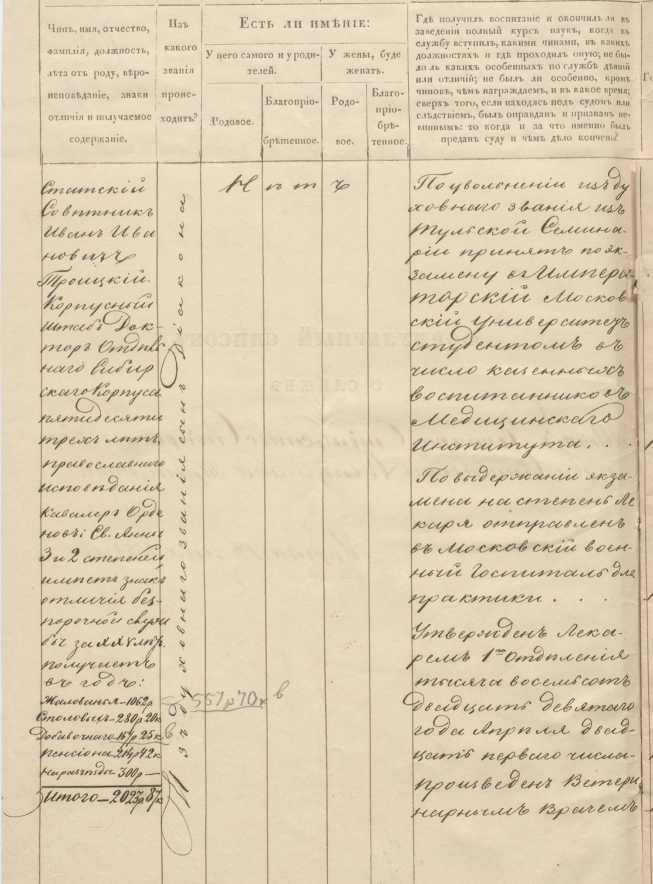 Чинъ, имя, отчество,
фамилія, должность,
лѣта отъ роду, вѣро-
исповѣданіе, знаки
отличія и получаемое
содержаніе.
Изъ
какого
званія
проис-
ходитъ?
Есть ли имѣніе:
У него самого и у роди-
телей.
Родовое.
Благопріо-
брѣтенное.
У жены, буде
женатъ.
Родо-
вое.
Благо-
пріо-
брѣ-
тенное.
Гдѣ получилъ воспитаніе и окончилъ ли въ
заведеніи полный курсъ наукъ, когда въ
службу вступилъ, какими чинами, въ какихъ
должностяхъ и гдѣ проходилъ оную; не бы-
ли ль какихъ особенныхъ по службѣ дѣяній
или отличій; не былъ ли особенно, кромѣ
чиновъ, чѣмъ награждаемъ, и въ какое время;
сверхъ того, если находясь подъ судомъ или
слѣдствіемъ, былъ оправданъ и признанъ не-
виннымъ: то когда и за что именно былъ
преданъ суду и чѣмъ дѣло кончено?
Статскій
Совѣтникъ
Иванъ Ива
новичъ
Троицкій.
Корпусный
Штабъ Док-
торъ Отдѣль
наго Сибир
скаго Корпуса
пятидесяти
трехъ лѣтъ,
православнаго
исповѣданія
Кавалеръ Орде
новъ: Св. Анны
3 и 2 степеней
имѣетъ знакъ
отличія без-
порочной служ
бы за XXV лѣтъ.
получаетъ
въ годъ:
Жалованья - 1062р
Столовыхъ - 280р 20к
Добавочнаго 167р 25к
пенсіона 214р 42к
на разъѣзды 300р —
Итого — 2023р 87к
Изъ духовнаго званія сынъ Діакона
Н ѣ т ъ
557р 70к
По уволненіи изъ ду
ховнаго званія изъ
Тульской Семина-
ріи принятъ по эк-
замену въ Импера-
торскій Москов-
скій университетъ
студентомъ въ
число казенныхъ
воспитанниковъ
Медицинскаго
Института. . .
По выдержаніи экза-
мена на степень Ле-
каря отправленъ
въ Московскій воен-
ный Госпиталь для
практики . . .
Утвержденъ Лека-
ремъ 1го Отдѣленія
тысяча восемьсотъ
двадцать девятаго
года Апрѣля двад-
цать перваго числа.
Произведенъ Ветери
нарнымъ Врачемъ